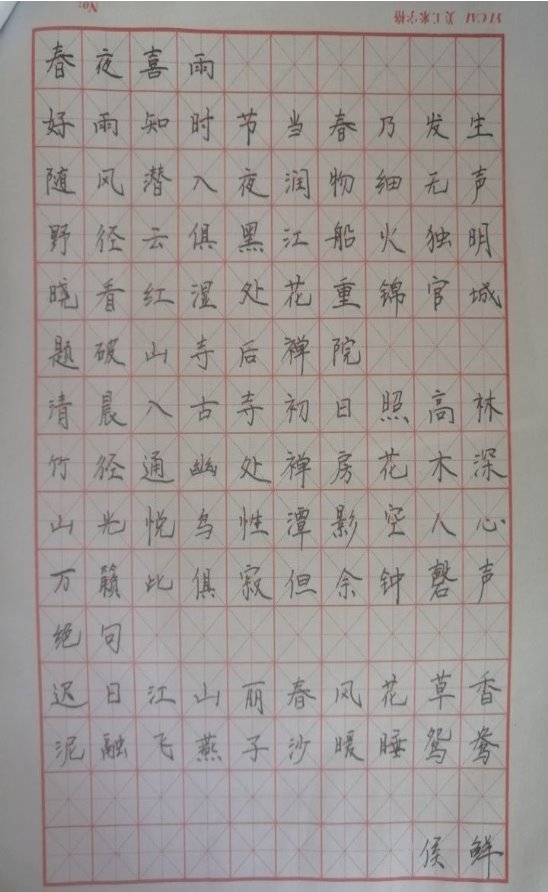 No:
美工米字格
春夜喜雨
好雨知时节当春乃发生
随风潜入夜润物细无声
野径云俱黑江船火独明
晓看红湿处花重锦官城
题破山寺后禅院
清晨入古寺初日照高林
竹径通幽处禅房花木深
山光悦鸟性潭影空人心
万籁此俱寂但余钟磬声
绝句
迟日江山丽春风花草香
泥融飞燕子沙暖睡鸳鸯
侯鲜